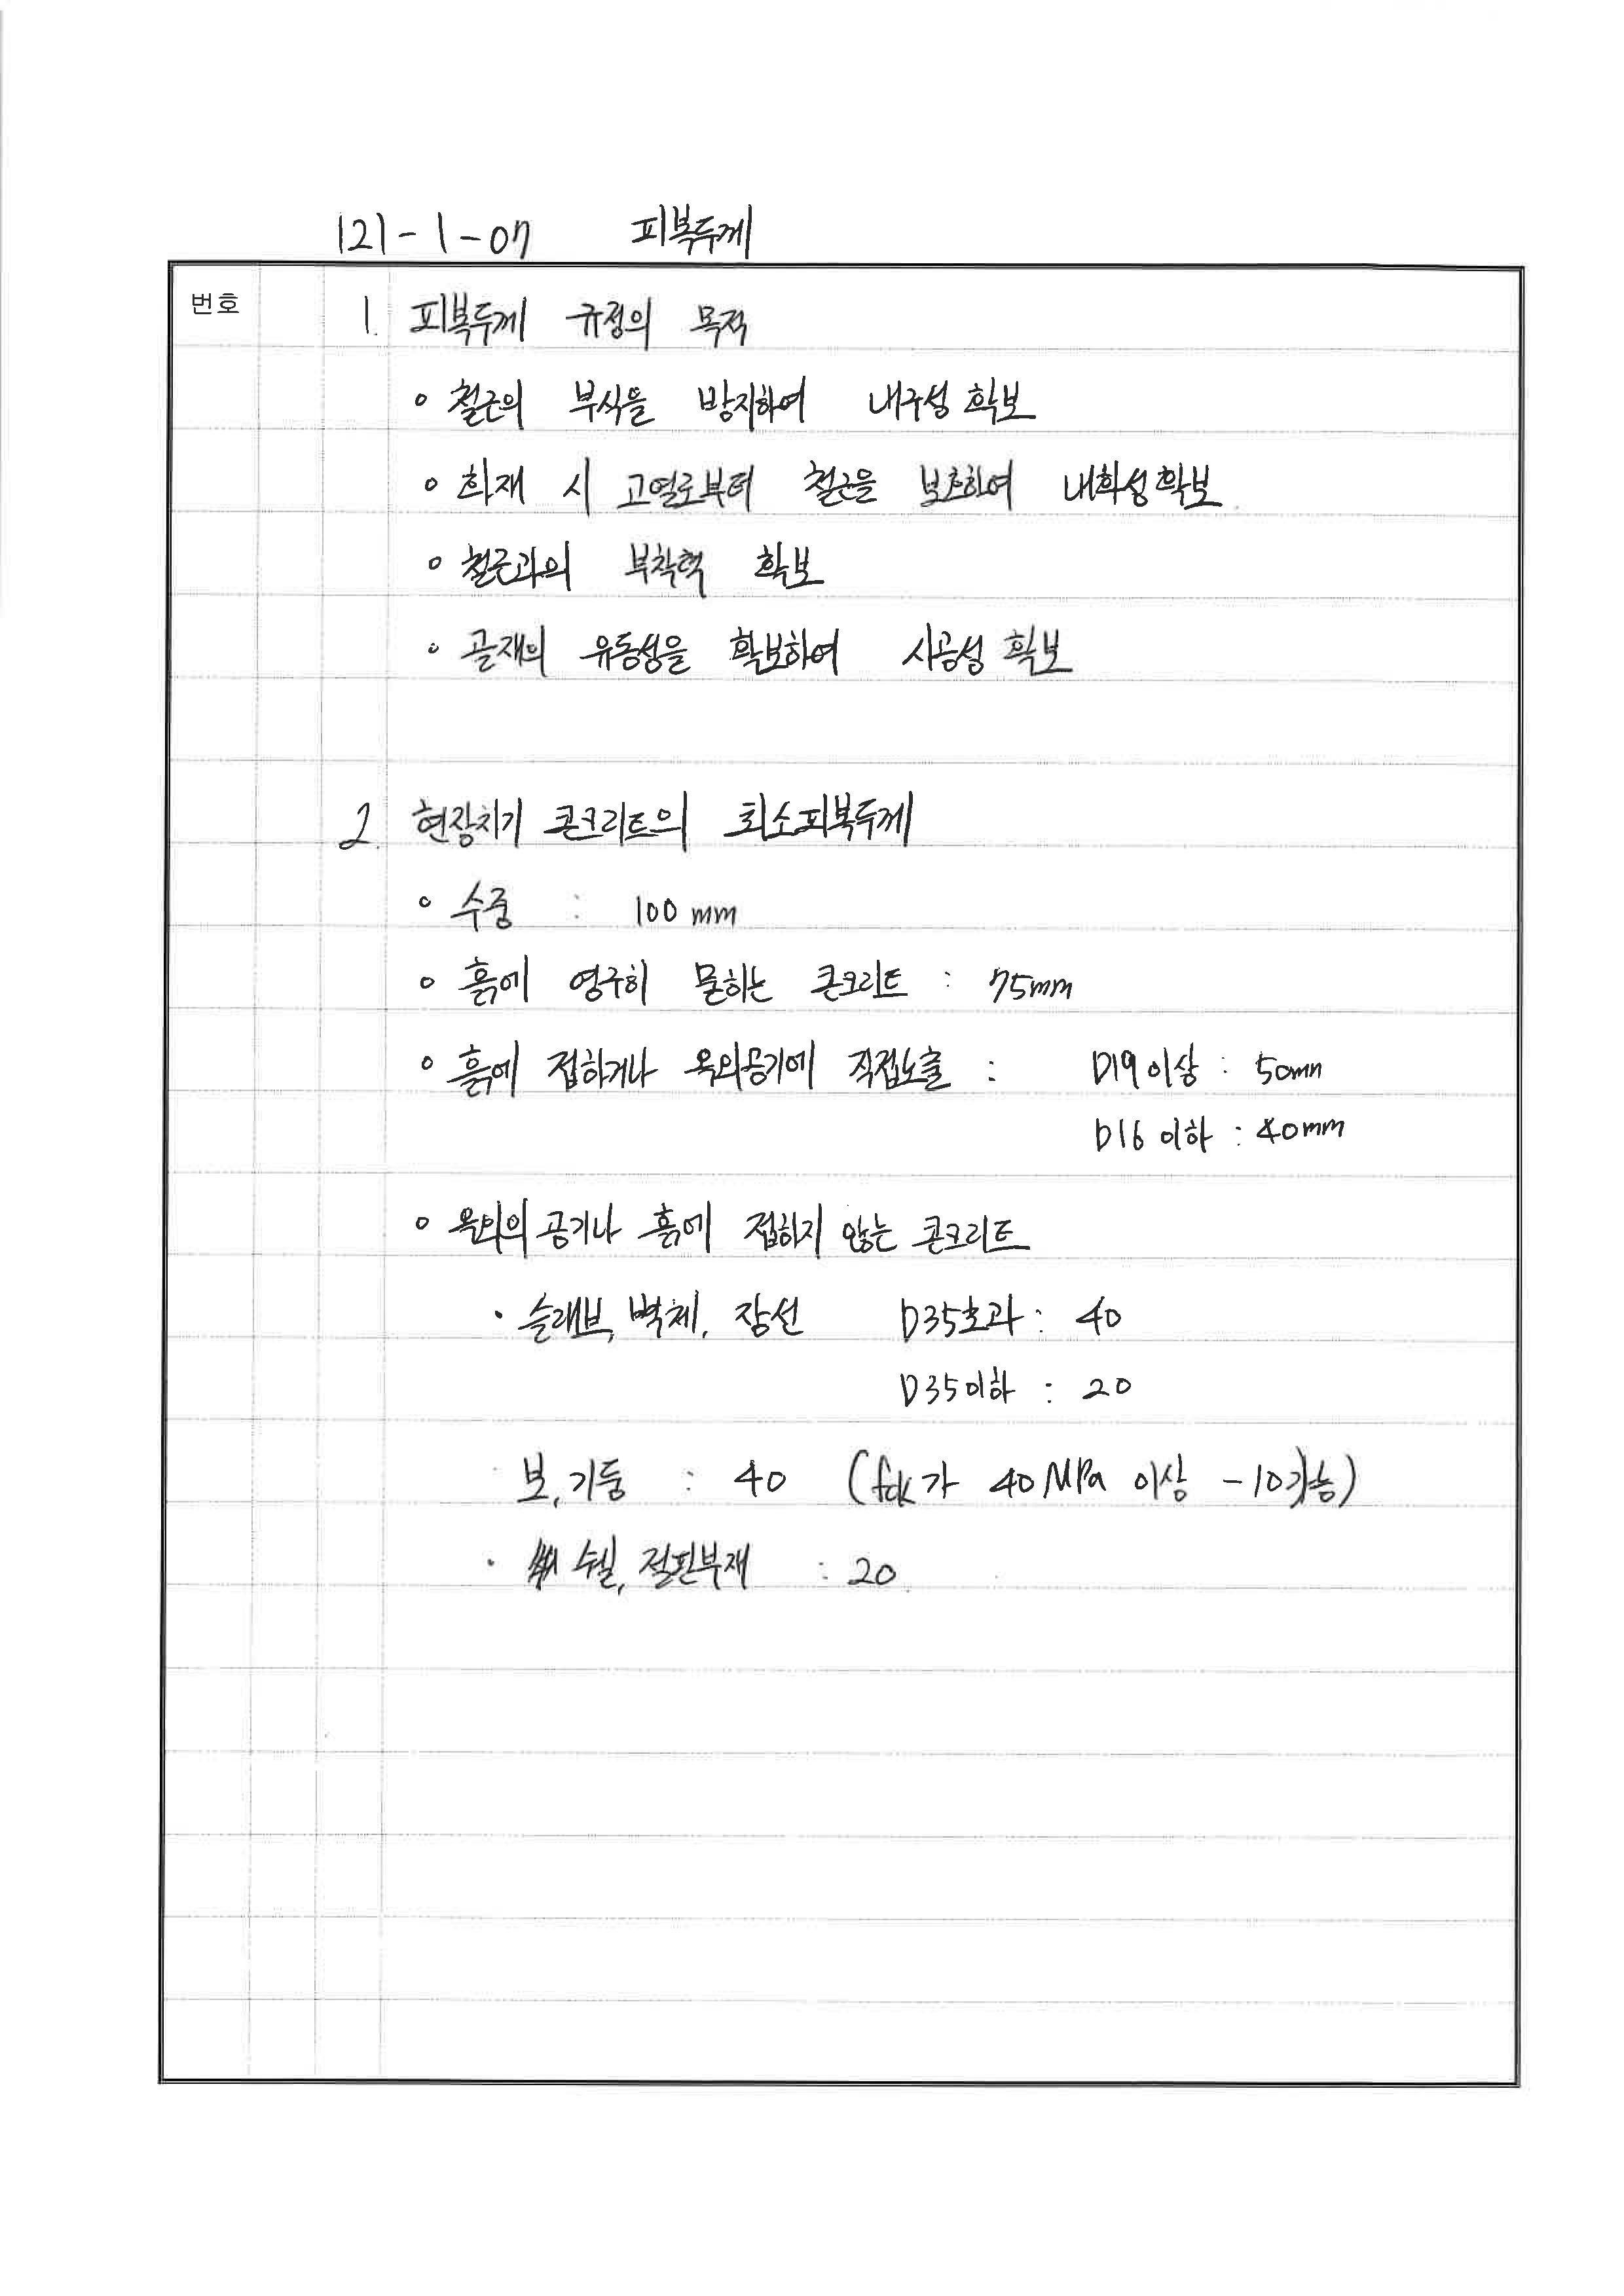 121-1-07 피복두께
번호
1. 피복두께 규정의 목적
∘ 철근의 부식을 방지하여 내구성 확보
∘ 화재 시 고열로부터 철근을 보호하여 내화성 확보
∘ 철근과의 부착력 확보
∘ 골재의 유동성을 확보하여 시공성 확보
2. 현장치기 콘크리트의 최소피복두께
∘ 수중 : 100 mm
∘ 흙에 영구히 묻히는 콘크리트 : 75mm
∘ 흙에 접하거나 옥외공기에 직접노출 : D19 이상 : 50mm
D16 이하 : 40mm
∘ 옥외의 공기나 흙에 접하지 않는 콘크리트
· 슬래브, 벽체, 장선 D35초과 : 40
D35이하 : 20
· 보, 기둥 : 40 (fck가 40 MPa 이상 -10가능)
· 쉘, 절판부재 : 20